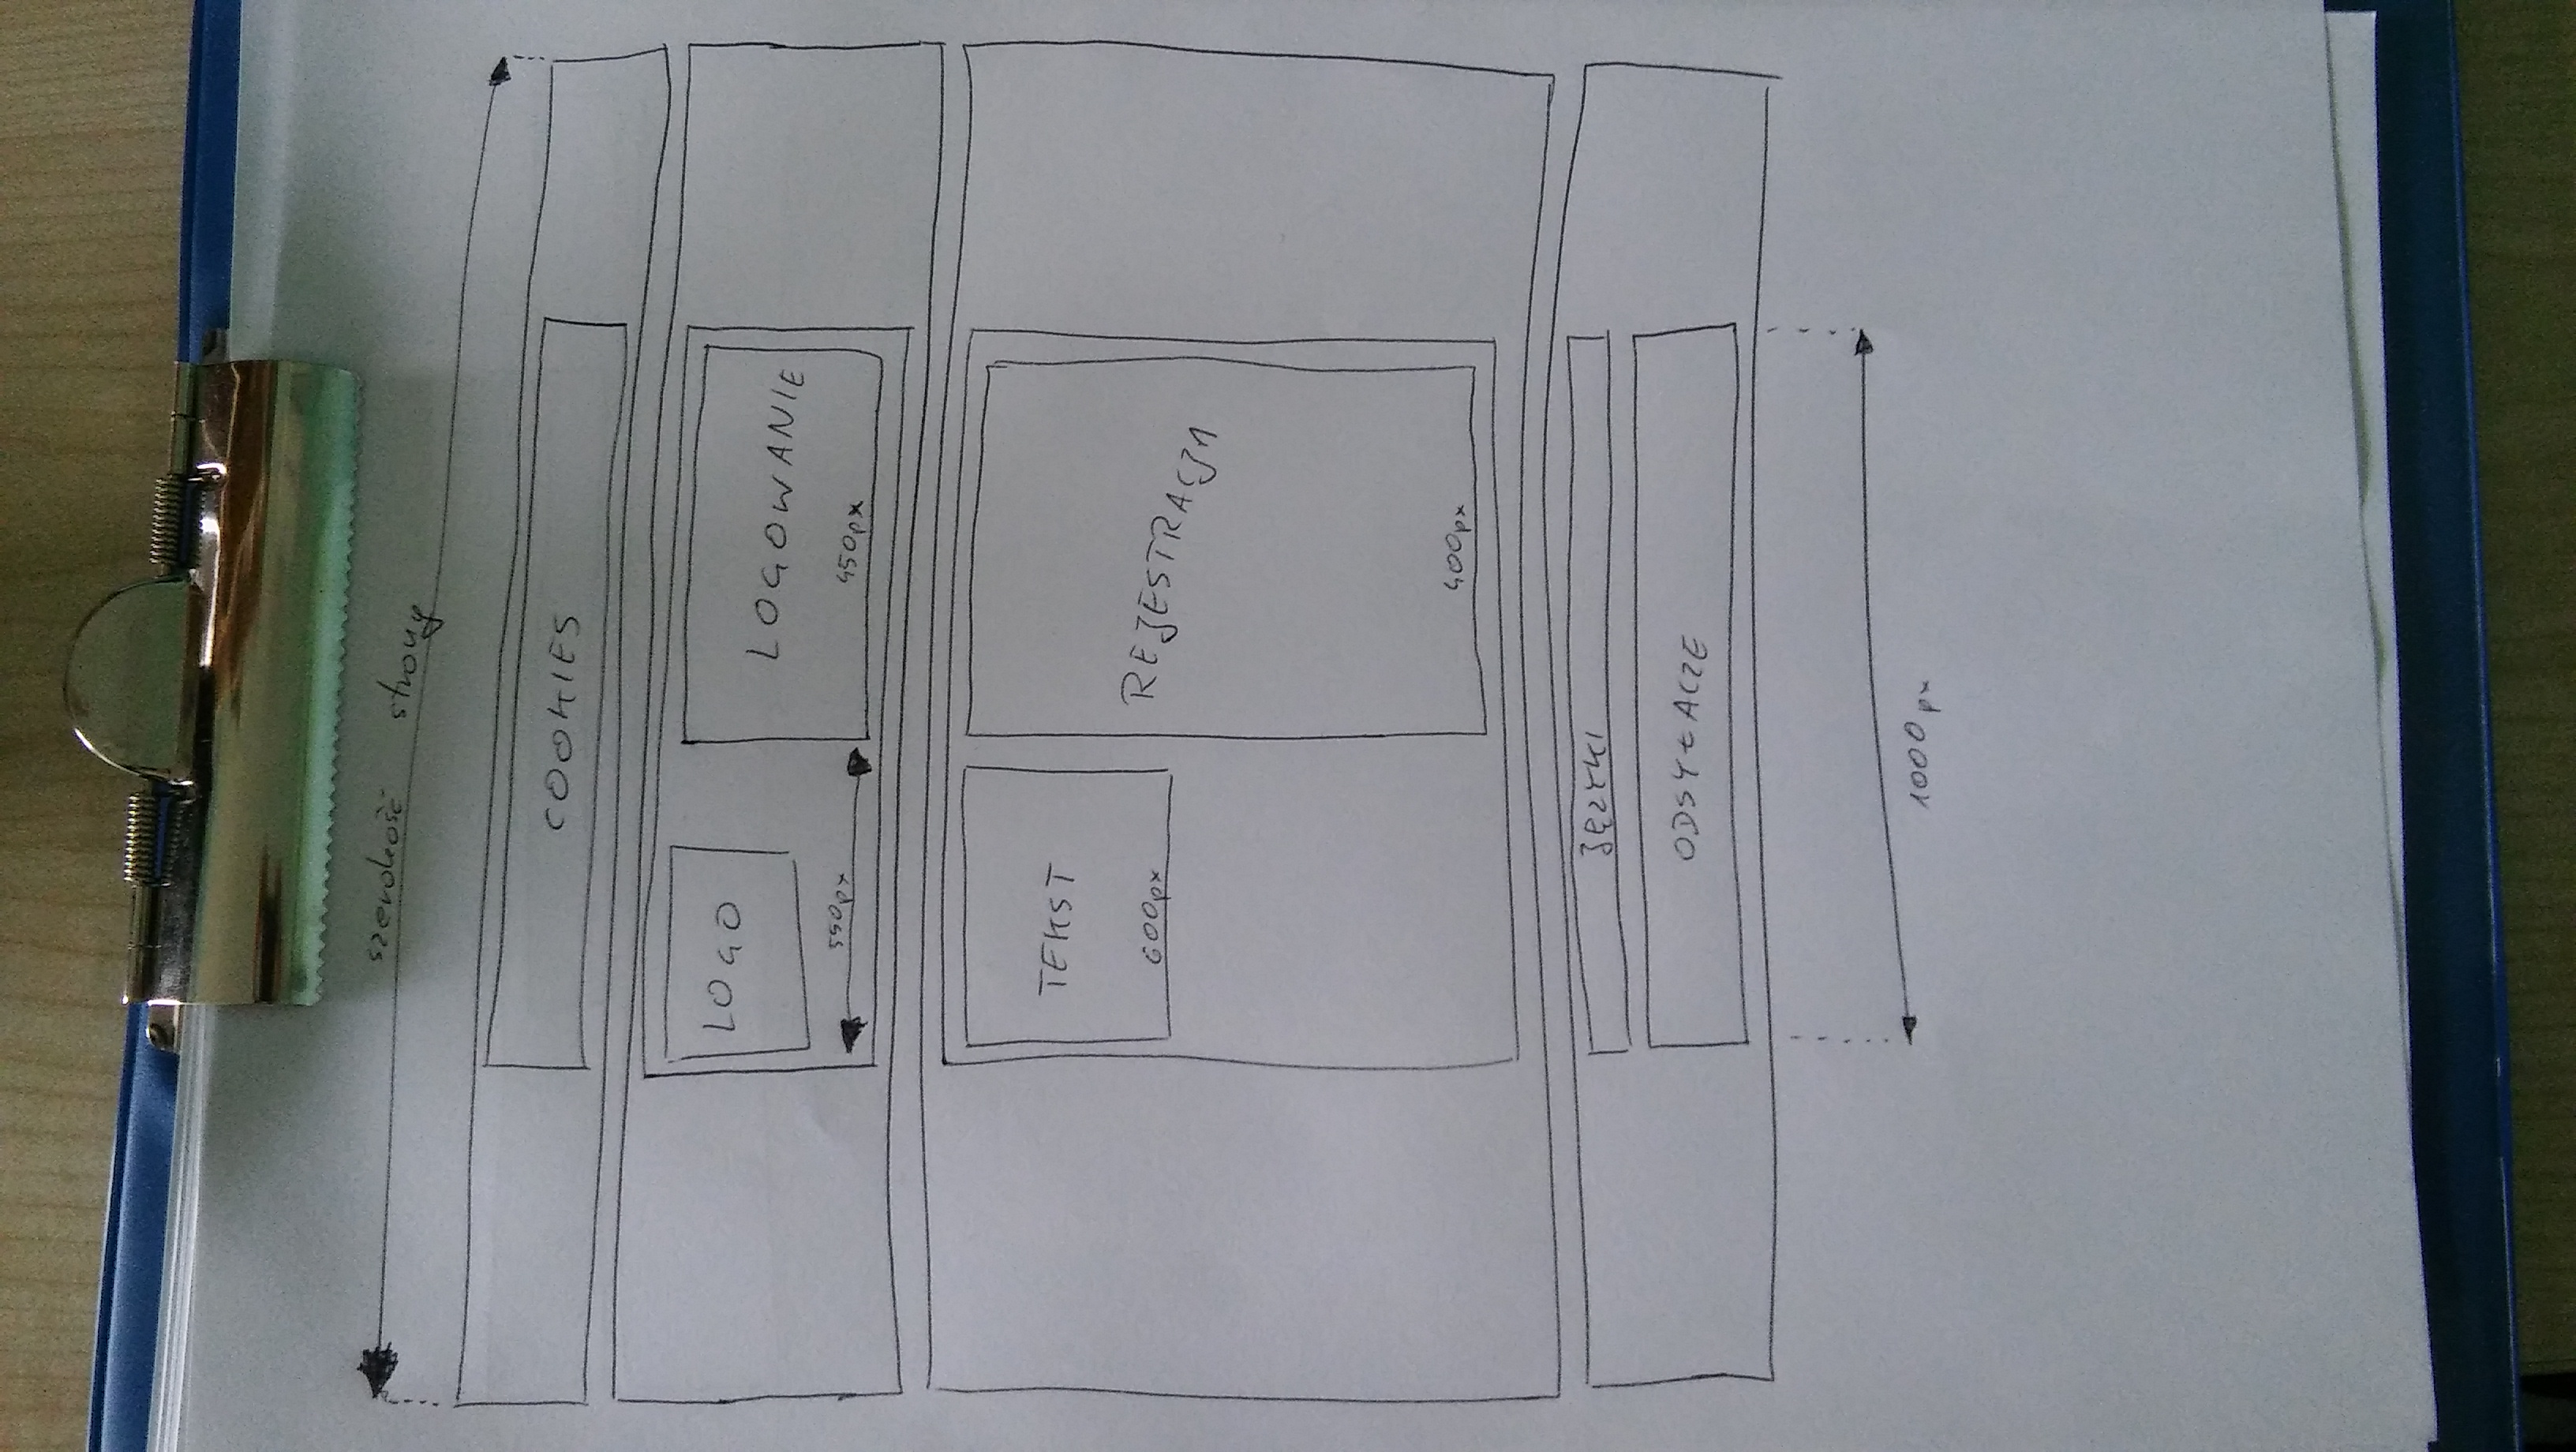 szerokość strony
COOKIES
LOGO
550px
LOGOWANIE
450px
TEKST
600px
REJESTRACJA
400px
JĘZYKI
ODSYŁACZE
1000px